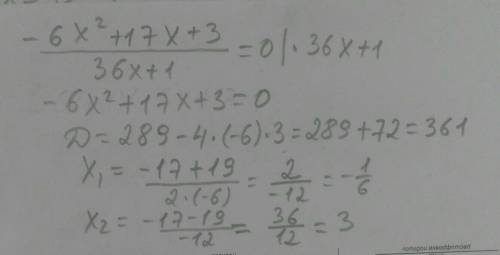 -6x²+17x+3 / 36x+1 = 0 | · 36x+1
-6x²+17x+3=0
D=289-4·(-6)·3=289+72=361
x₁ = -17+19 / 2·(-6) = 2 / -12 = -1/6
x₂ = -17-19 / -12 = 36 / 12 = 3